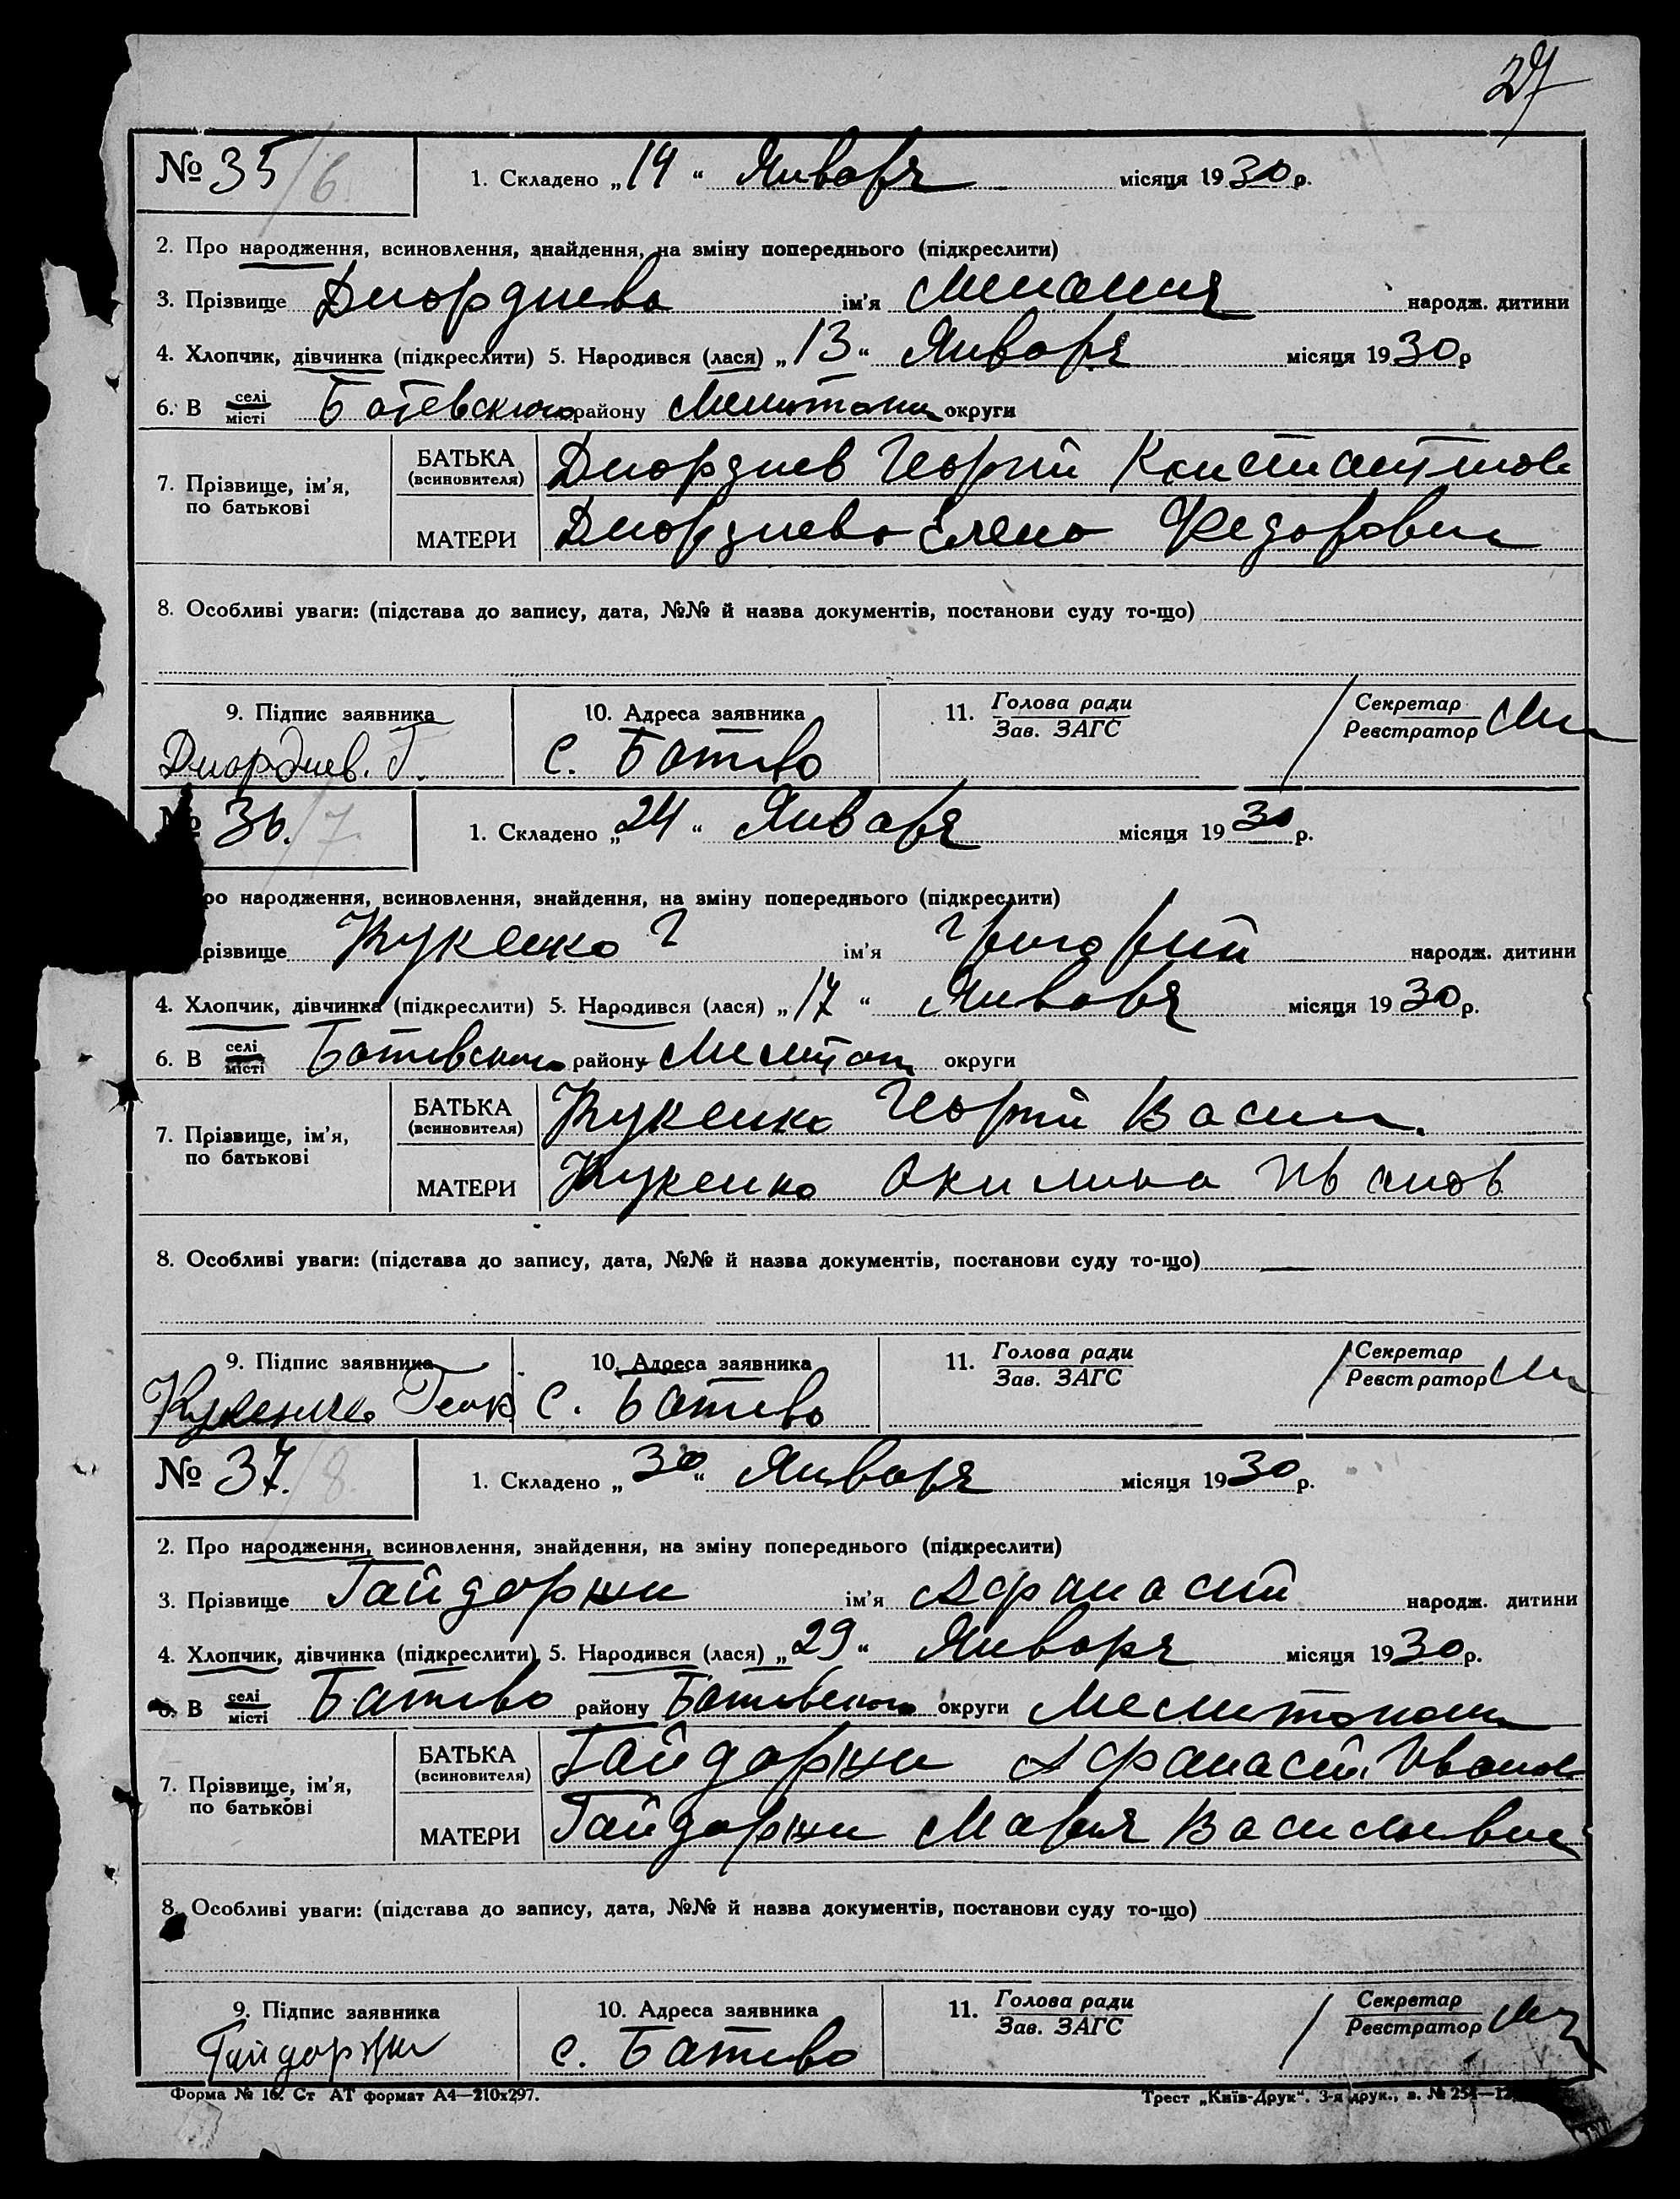 27
№ 35/6. 1. Складено „14“ Января місяця 1930 р.
2. Про народження, всиновлення, знайдення, на зміну попереднього (підкреслити)
3. Прізвище Диордиева ім’я Мелания народж. дитини
4. Хлопчик, дівчинка (підкреслити) 5. Народився (лася) „13“ Января місяця 1930 р
6. В селі місті Ботевского району округи
7. Прізвище, ім’я, по батькові БАТЬКА (всиновителя) Диордиев Георгий Константинов
МАТЕРИ Диордиева Елена Федоровна
8. Особливі уваги: (підстава до запису, дата, №№ й назва документів, постанови суду то-що)
9. Підпис заявника 10. Адреса заявника 11. Голова ради Зав. ЗАГС Секретар Реєстратор
Диордиев. Г. с. Ботево
№ 36./7. 1. Складено „24“ Января місяця 1930 р.
ро народження, всиновлення, знайдення, на зміну попереднього (підкреслити)
різвище Кукенко Г ім’я Григорий народж. дитини
4. Хлопчик, дівчинка (підкреслити) 5. Народився (лася) „17“ Января місяця 1930 р.
6. В селі місті Ботевского району округи
7. Прізвище, ім’я, по батькові БАТЬКА (всиновителя) Кукенко Георгий Васил.
МАТЕРИ Кукенко Акилина Иванов
8. Особливі уваги: (підстава до запису, дата, №№ й назва документів, постанови суду то-що)
9. Підпис заявника 10. Адреса заявника 11. Голова ради Зав. ЗАГС Секретар Реєстратор
Кукенко с. Ботево
№ 37./8. 1. Складено „30“ Января місяця 1930 р.
2. Про народження, всиновлення, знайдення, на зміну попереднього (підкреслити)
3. Прізвище Гайдоржи ім’я Афанасий народж. дитини
4. Хлопчик, дівчинка (підкреслити) 5. Народився (лася) „29“ Января місяця 1930 р.
6. В селі місті Ботево району Ботевского округи
7. Прізвище, ім’я, по батькові БАТЬКА (всиновителя) Гайдоржи Афанасий Иванов
МАТЕРИ Гайдоржи Мария Васильевна
8. Особливі уваги: (підстава до запису, дата, №№ й назва документів, постанови суду то-що)
9. Підпис заявника 10. Адреса заявника 11. Голова ради Зав. ЗАГС Секретар Реєстратор
Гайдоржи с. Ботево
Форма № 16. Ст АТ формат А4—210х297. Трест „Київ-Друк“. 3-я друк., з. № 254—12